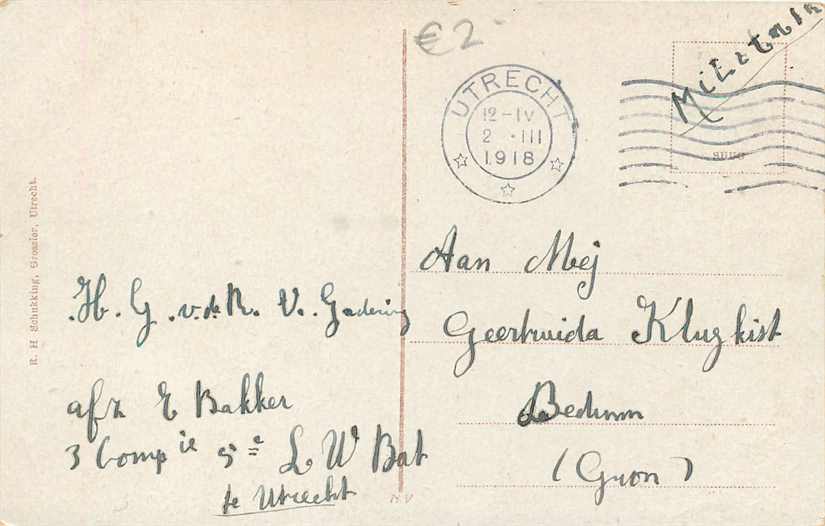 €2
Militair
UTRECHT
12-IV
2 .III
1918
R. H. Schukking, Grossier, Utrecht.
H. G. v. d. R. V. Gadering
afz E Bakker
3 Compie 5e L W Bat
te Utrecht
Aan Mej
Geertruida Klugkist
Bedum
(Gron)